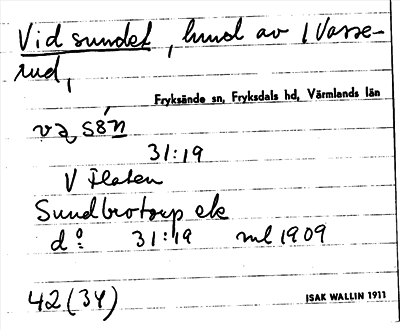 Vid sundet, hmd av 1 Vasse-
rud,
Fryksände sn, Fryksdals hd, Värmlands län
31:19
V Flaten
Sundbrotorp ek
d:o 31:19 ml 1909
42(34)
ISAK WALLIN 1911